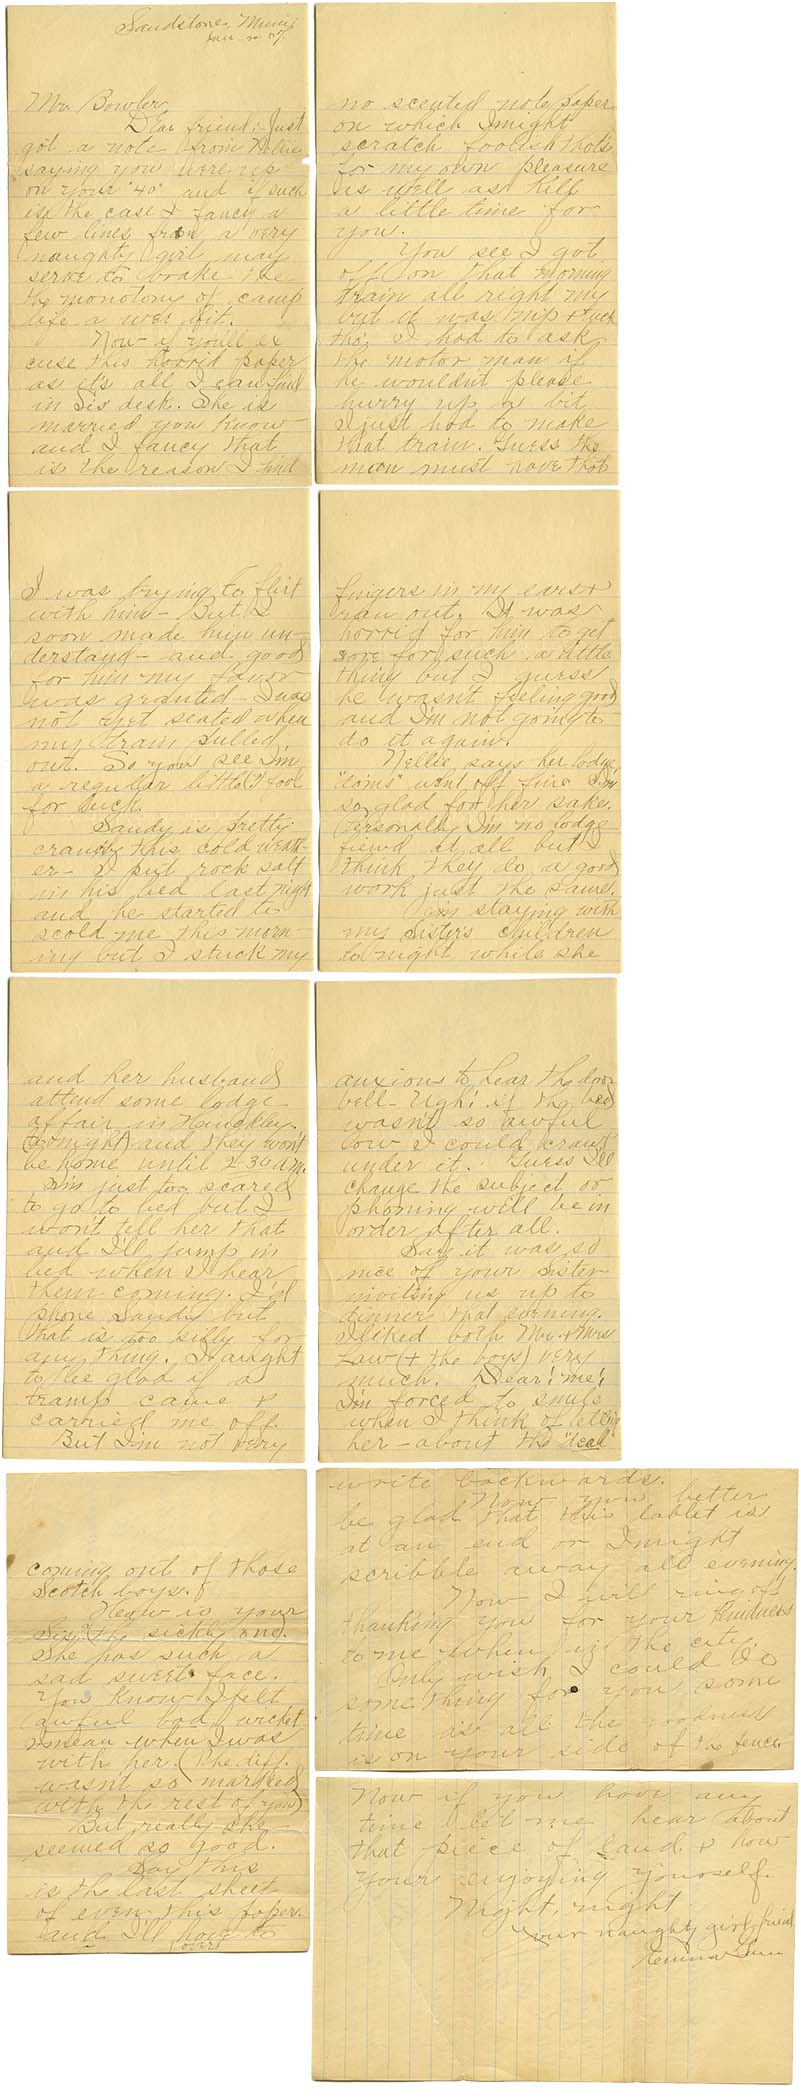 Sandstone, Minn.
Jan - - 07.
Mr. Bowler
Dear friend: Just
got a note from Nellie
saying you were up
on your "40" and if such
is the case I fancy a
few lines from a very
naughty girl may
serve to brake the
the monotony of camp
life a wee bit.
Now if you'll ex
cuse this horrid paper
as it's all I can find
in Sis desk. She is
married you know
and I fancy that
is the reason I find
no scented note paper
on which I might
scratch foolish thots
for my own pleasure
as well as kill
a little time for
you.
You see I got
off on that morning
train all right my
but it was nip + tuck
tho'. I had to ask
the motor man if
he wouldn't please
hurry up a bit
I just had to make
that train. Guess the
man must have thot
I was trying to flirt
with him - But I
soon made him un-
derstand - and good
for him my favor
was granted - I was
not yet seated when
my train pulled
out. So you see I'm
a regular little(?) fool
for luck.
Sandy is pretty
cranky this cold weath-
er - I put rock salt
in his bed last night
and he started to
scold me this morn-
ing but I stuck my
fingers in my ears +
ran out. It was
horrid for him to get
sore for such a little
thing but I guess
he wasn't feeling good
and I'm not going to
do it again.
Nellie says her lodge
"doins" went off fine I'm
so glad for her sake.
Personally I'm no lodge
fiend at all but I
think they do a good
work just the same.
I'm staying with
my sister's children
to night while she
and her husband
attend some lodge
affair in Hinckley
(tonight) and they won't
be home until 2-30 a.m.
I'm just too scared
to go to bed but I
won't tell her that
and I'll jump in
bed when I hear
them coming. I'd
phone Sandy but
that is too silly for
any thing. I aught
to be glad if a
tramp came &
carried me off.
But I'm not very
anxious to hear the door
bell - Ugh! if the bed
wasn't so awful
low I could crawl
under it. Guess I'll
change the subject or
phoning will be in
order after all.
Say it was so
nice of your sister
inviting us up to
dinner that evening.
I liked both Mr. + Mrs
Law (+ the boys) very
much. Dear! me!
I'm forced to smile
when I think of telling
her - about the "deal
coming out of those
Scotch boys.
How is your
Sis? (the sickly one).
She has such a
sad sweet face.
You know I felt
awful bad, wicket
+ mean when I was
with her. (The diff.
wasn't so marked
with the rest of you)
But really she
seemed so good.
Say this
is the last sheet
of even this paper.
and I'll have to
(over)
write backwards.
Now you better
be glad that this tablet is
at an end or I might
scribble away all evening.
Now I will ring off
thanking you for your kindness
to me when in the city.
Only wish I could do
something for you some
time as all the goodness
is on your side of the fence
Now if you have any
time let me hear about
that piece of land. & how
your enjoying yourself.
Night, night
Your naughty girl friend
Emma